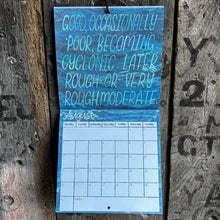 GOOD, OCCASIONALLY
POOR, BECOMING
CYCLONIC LATER
ROUGH OR VERY
ROUGH MODERATE.
August
Y
2